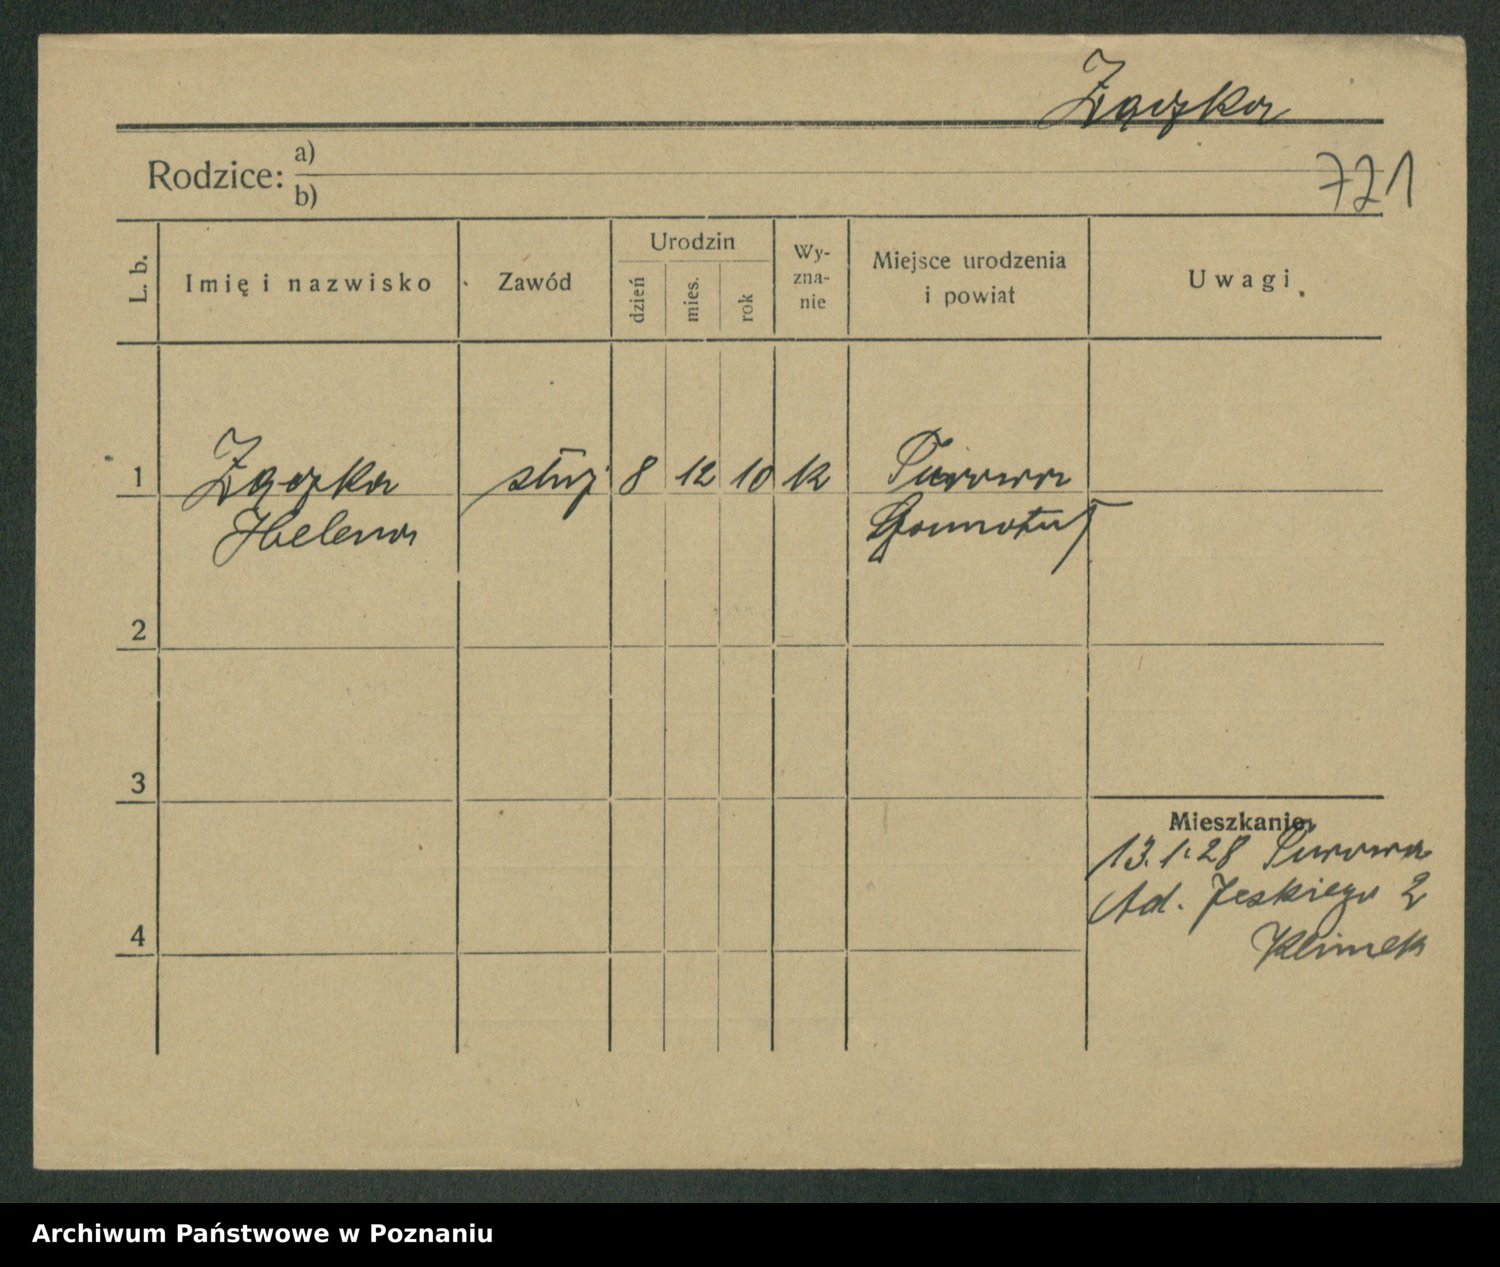 Zączka
Rodzice: a)
b)
721
L. b.
Imię i nazwisko
Zawód
Urodzin
dzień
mies.
rok
Wy-
zna-
nie
Miejsce urodzenia
i powiat
Uwagi
1
Zączka
Helena
służ
8
12
10
k
Turowa
Szamotuły
2
3
4
Mieszkanie:
13.1.28 Turowa
Ad. Jeskiego 2
Klimek
Archiwum Państwowe w Poznaniu